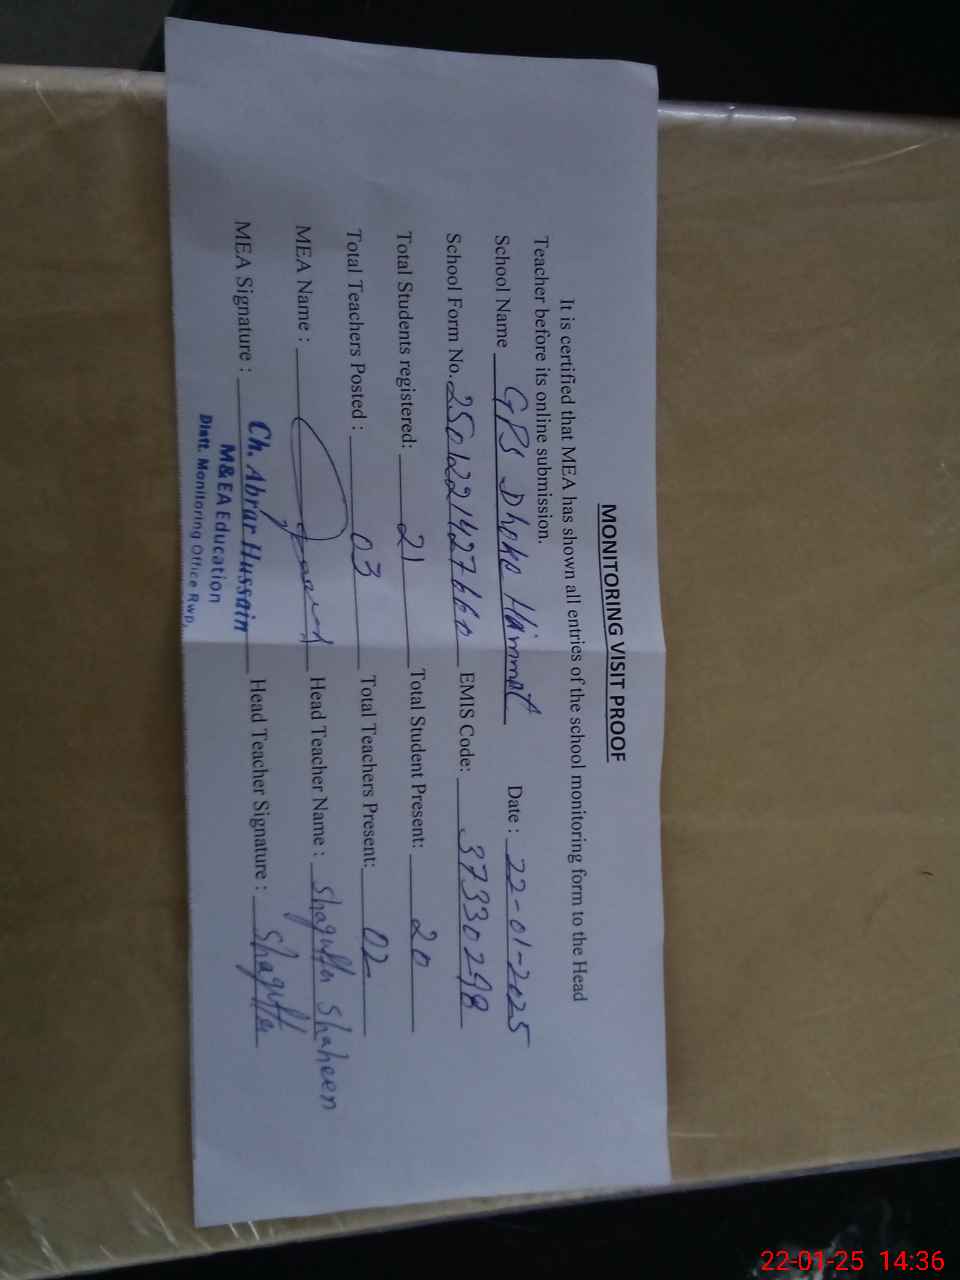 MONITORING VISIT PROOF
It is certified that MEA has shown all entries of the school monitoring form to the Head
Teacher before its online submission.
School Name GPS Dhoke Himmat Date : 22-01-2025
School Form No. 250122142766o EMIS Code: 37330298
Total Students registered: 21 Total Student Present: 20
Total Teachers Posted : 03 Total Teachers Present: 02
MEA Name : Head Teacher Name : Shagufta Shaheen
MEA Signature : Ch. Abrar Hussain Head Teacher Signature : Shagufta
M&EA Education
Distt. Monitoring Office Rwp,
22-01-25 14:36